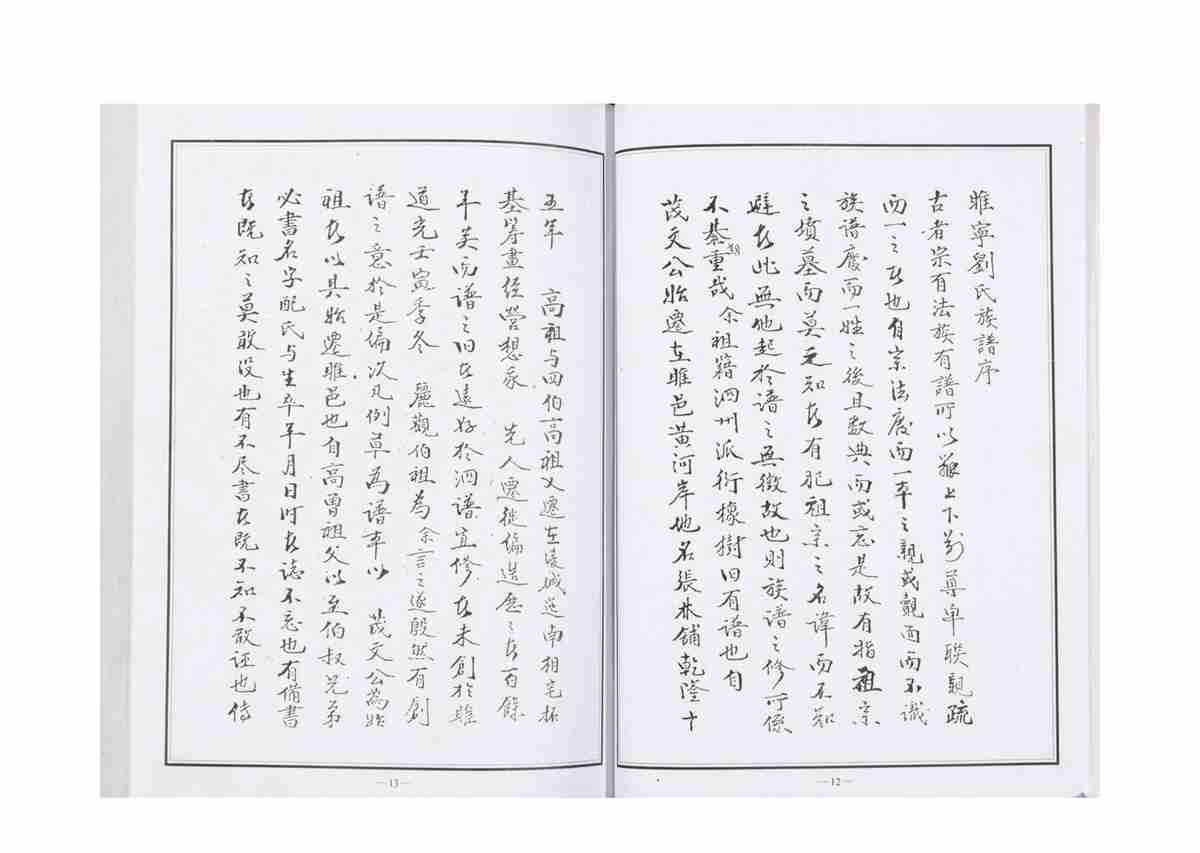 睢寧劉氏族譜序
古者宗有法族有譜所以親上下別尊卑聯親疏
而一之者也自宗法廢而一本之親或覿面而不識
族譜廢而一姓之後且数典而或忘是故有指祖宗
之墳墓而莫之知者有犯祖宗之名諱而不知
避者此無他起於譜之無徵故也則族譜之修所係
不綦重哉余祖籍泗州派衍橡樹旧有譜也自
茂文公始遷在睢邑黄河岸地名張林鋪乾隆十
五年 高祖与四伯高祖又遷在凌城迤南相宅拓
基籌畫経營想象 先人遷徙偏遠忽之者百餘
年矣而譜之旧者遠好於泗譜宜修者未創於睢
道光壬寅季冬 麗觀伯祖為余言之遂殷然有創
譜之意於是偏次凡例草為譜本以 茂文公為始
祖者以其始遷睢邑也自高曾祖父以至伯叔兄弟
必書名字配氏与生卒年月日时者誌不忘也有備書
者既知之莫敢没也有不尽書者既不知不敢誣也傳
—13—
—12—